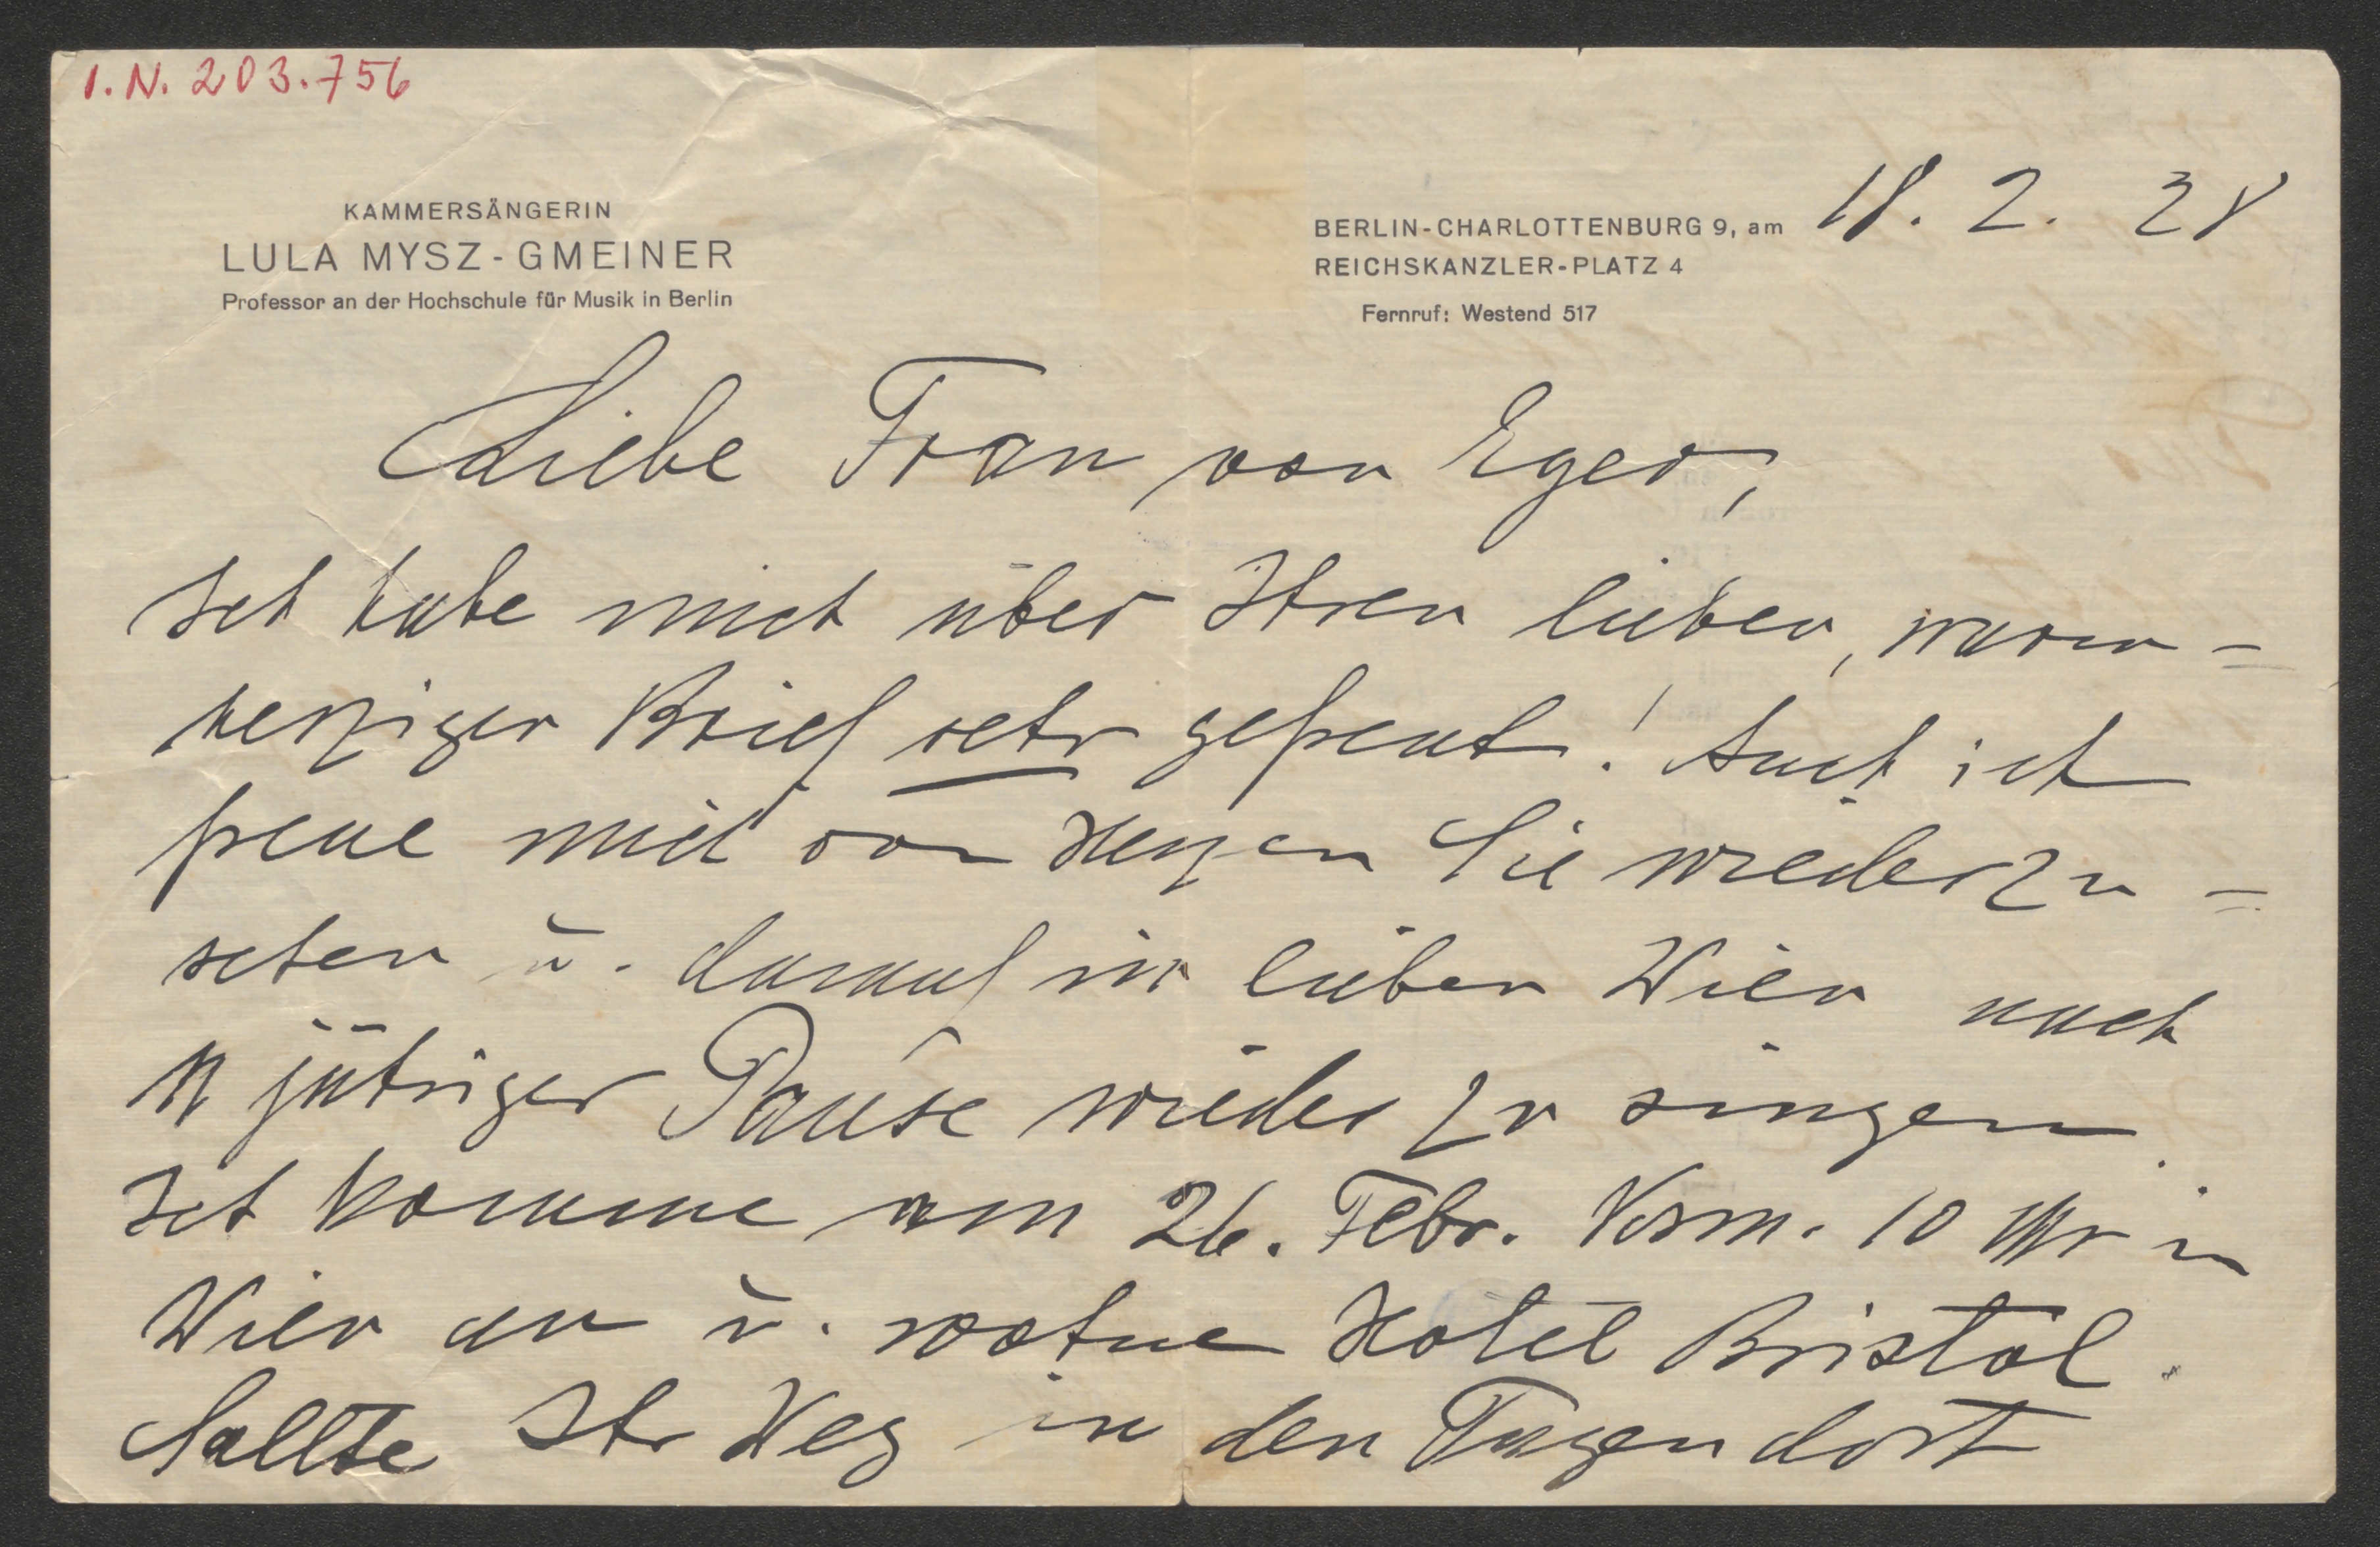 I.N. 203.756
KAMMERSÄNGERIN
LULA MYSZ-GMEINER
Professor an der Hochschule für Musik in Berlin
BERLIN-CHARLOTTENBURG 9, am 18. 2. 28
REICHSKANZLER-PLATZ 4
Fernruf: Westend 517
Liebe Frau von Eger,
Ich habe mich über Ihren lieben, warm-
herzigen Brief sehr gefreut! Auch ich
freue mich von Herzen Sie wiederzu-
sehen u. darauf im lieben Wien nach
jähriger Pause wieder zu singen.
Ich komme am 26. Febr. Vorm. 10 Uhr in
Wien an u. wohne Hotel Bristol.
Sollte Ihr Weg in den Tagen dort